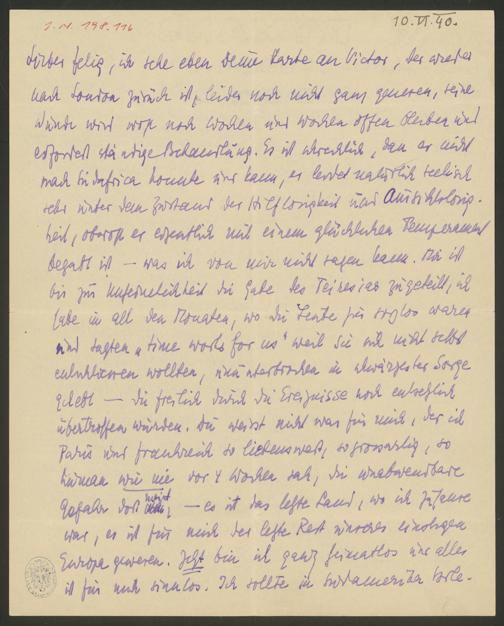 I.N. 198.116
10.VI.40.
Lieber Felix, ich sehe eben Deine Karte an Victor, der wieder
nach London zurück ist, leider noch nicht ganz genesen, seine
Wunde wird wohl noch Wochen und Wochen offen bleiben und
erfordert ständige Behandlung. Es ist schrecklich, dass er nicht
nach Südafrica konnte und kann, er leidet natürlich seelisch
sehr unter dem Zustand der Hilflosigkeit und Aussichtslosig-
keit, obwohl er eigentlich mit einem glücklichen Temperament
begabt ist — was ich von mir nicht sagen kann. Mir ist
bis zur Unheimlichkeit die Gabe des Teiresias zugeteilt, ich
habe in all den Monaten, wo die Leute hier sorglos waren
und sagten „time works for us" weil sie sich nicht selbst
wollten, ununterbrochen in schwärzester Sorge
gelebt — die freilich durch die Ereignisse noch entsetzlich
übertroffen wurden. Du weisst nicht was für mich, der ich
Paris und Frankreich so liebenswert, so grossartig, so
human wie nie vor 4 Wochen sah, die unabwendbare
Gefahr dort — es ist das letzte Land, wo ich zuhause
war, es ist für mich der letzte Rest unseres einstigen
Europa gewesen. Jetzt bin ich ganz heimatlos und alles
ist für mich sinnlos. Ich sollte in Südamerika Vorle-